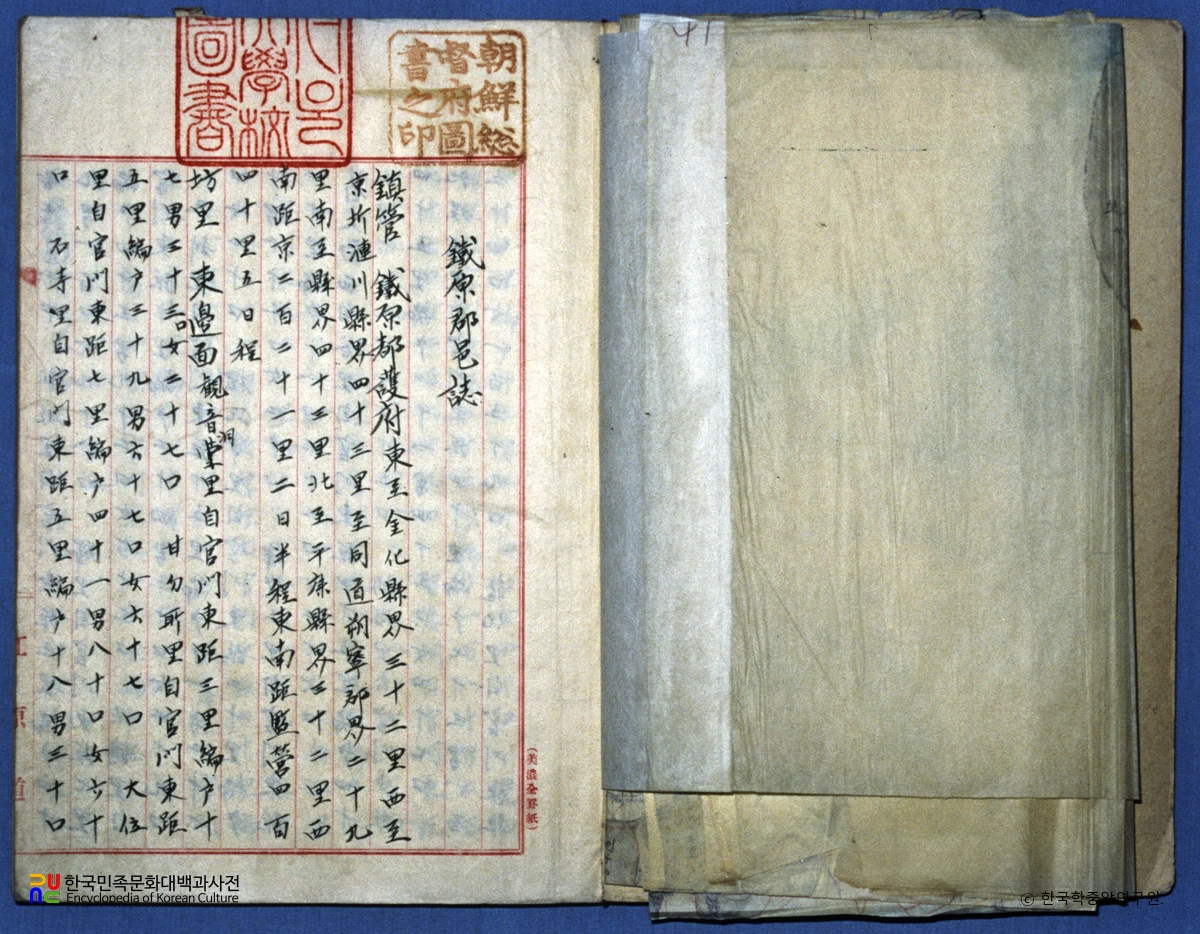 鐵原郡邑誌
鎮管 鐵原都護府東至金化縣界三十二里西至
京圻漣川縣界四十三里至同道朔寧郡界二十九
里南至縣界四十三里北至平康縣界三十二里西
南距京二百二十一里二日半程東南距監營四百
四十里五日程
坊里 東邊面觀音洞里自官門東距三里編户十
七男三十三口女二十七口 甘勿所里自官門東距
五里編户三十九男六十七口女六十七口 大位
里自官門東距七里編户四十一男八十口女六十
口 石寺里自官门東距五里編户十八男三十口
朝鮮総
督府圖
書之印
學校
圖書
(美濃全罫紙)
江原道
41
한국민족문화대백과사전
Encyclopedia of Korean Culture
© 한국학중앙연구원.